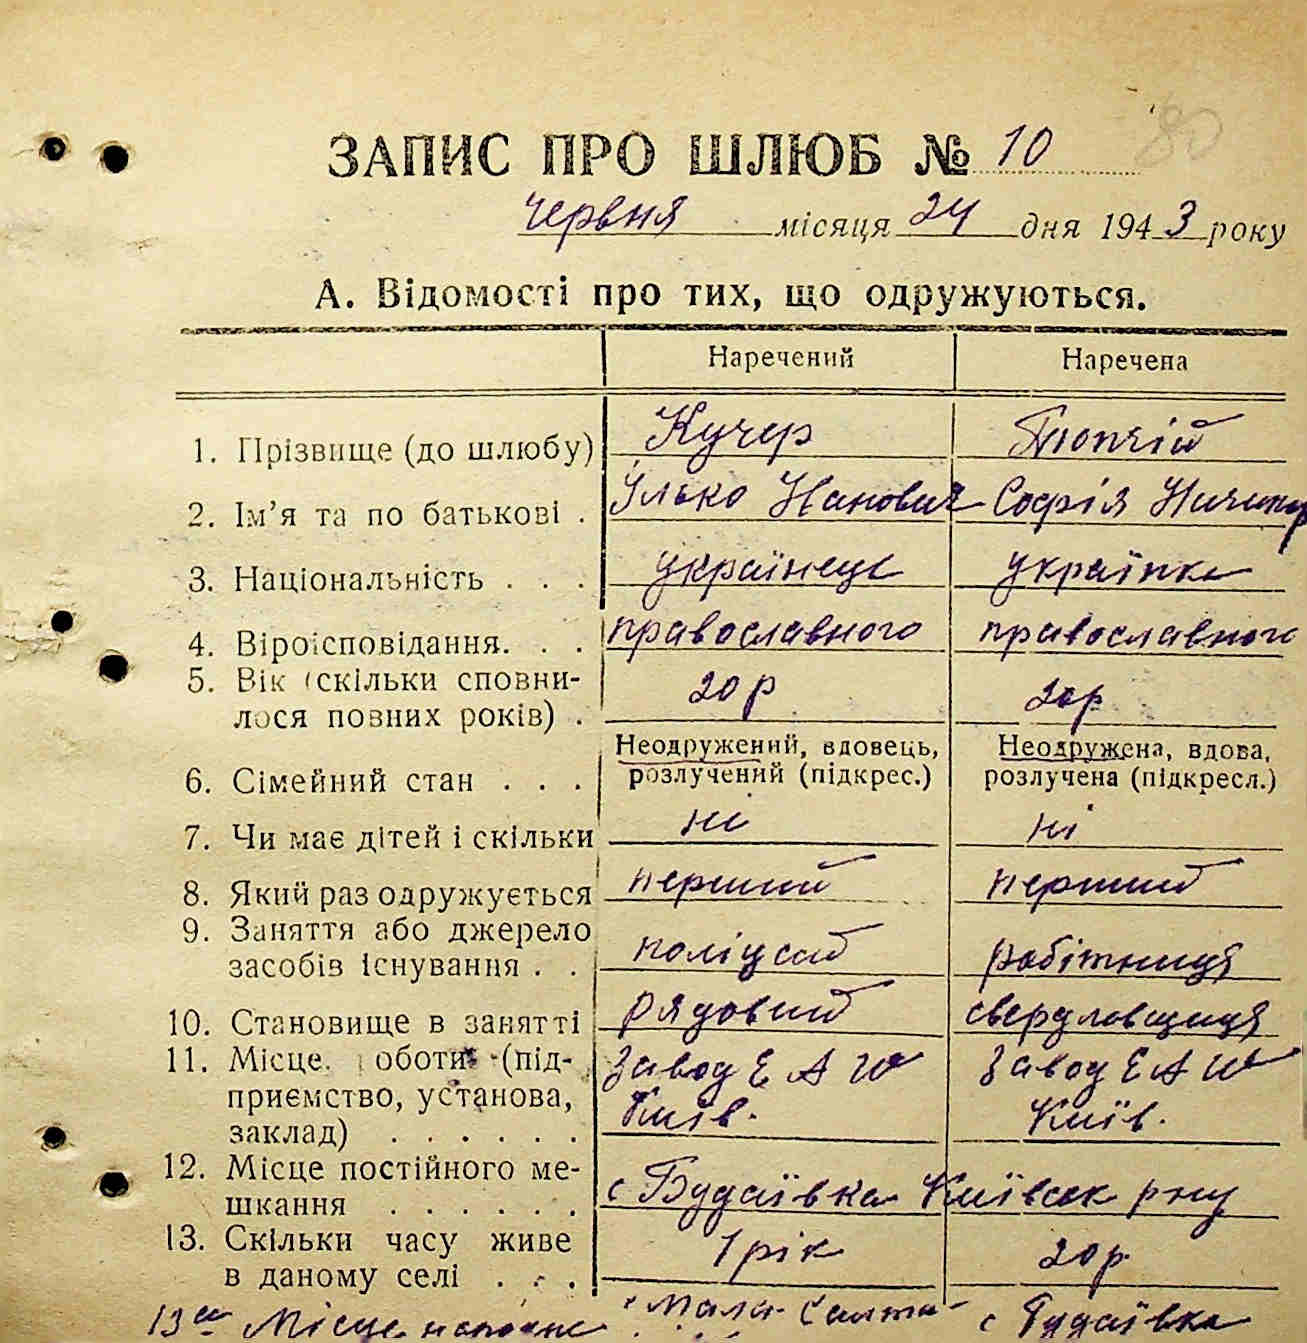 80
ЗАПИС ПРО ШЛЮБ № 10
червня місяця 24 дня 1943 року
А. Відомості про тих, що одружуються.
Наречений Наречена
1. Прізвище (до шлюбу) Кучер Тюпчій
2. Ім’я та по батькові . Ілько Софія
3. Національність . . . українець українка
4. Віроісповідання. . . православного православного
5. Вік (скільки сповни-
лося повних років) . 20 р 20 р
Неодружений, вдовець, Неодружена, вдова,
6. Сімейний стан . . . розлучений (підкрес.) розлучена (підкресл.)
7. Чи має дітей і скільки ні ні
8. Який раз одружується перший перший
9. Заняття або джерело
засобів існування . . поліцсай робітниця
10. Становище в занятті рядовий свердловщиця
11. Місце оботи (під-
приємство, установа, Завод Е А W Завод Е А W
заклад) . . . . . . Київ. Київ.
12. Місце постійного ме-
шкання . . . . . . с Будаївка Київськ рну
13. Скільки часу живе
в даному селі . . . 1 рік 20 р.
13а Місце Мала с Будаївка